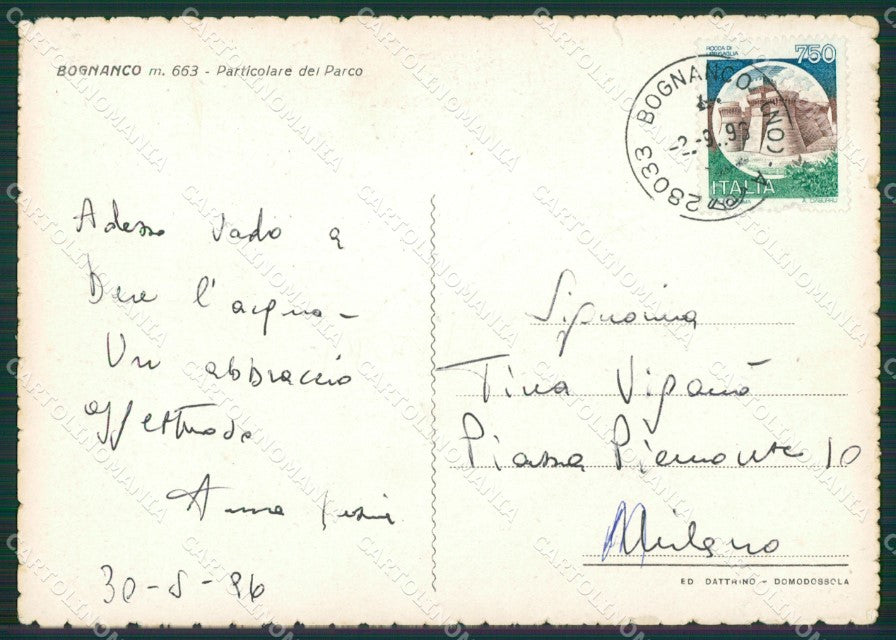 BOGNANCO m. 663 - Particolare del Parco
ROCCA DI
750
ITALIA
28033 BOGNANCO (NO)
2.-9.96
Adesso vado a
bere l'acqua -
Un abbraccio
affettuoso
Anna
30-8-96
Signorina
Tina Viganò
Piazza Piemonte 10
Milano
ED DATTRINO - DOMODOSSOLA
CARTOLINOMANIA